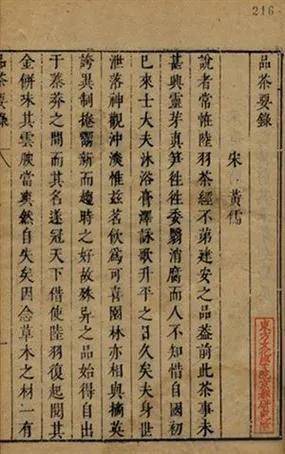 216
品茶要錄
宋 黃儒
說者常恠陸羽茶經不第建安之品蓋前此茶事未
甚興靈芽真笋徃徃委翳消腐而人不知惜自國初
已來士大夫沐浴膏澤詠歌升平之日久矣夫身世
泄落神觀沖淡惟茲茗飲爲可喜園林亦相與摘英
誇異制捲鬻新而趨時之好故殊异之品始得自出
于蓁莽之間而其名遂冠天下借使陸羽復起閱其
金餅味其雲腴當爽然自失矣因念草木之材一有
茶要錄